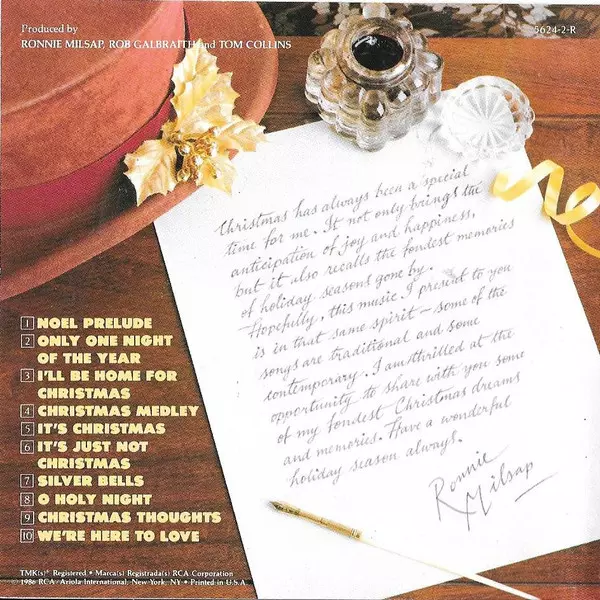 Produced by
RONNIE MILSAP, ROB GALBRAITH and TOM COLLINS
5624-2-R
Christmas has always been a special
time for me. It not only brings the
anticipation of joy and happiness,
but it also recalls the fondest memories
of holiday seasons gone by.
Hopefully, this music I present to you
is in that same spirit – some of the
songs are traditional and some
contemporary. I am thrilled at the
opportunity to share with you some
of my fondest Christmas dreams
and memories. Have a wonderful
holiday season always.
Ronnie
Milsap
1 NOEL PRELUDE
2 ONLY ONE NIGHT
OF THE YEAR
3 I'LL BE HOME FOR
CHRISTMAS
4 CHRISTMAS MEDLEY
5 IT'S CHRISTMAS
6 IT'S JUST NOT
CHRISTMAS
7 SILVER BELLS
8 O HOLY NIGHT
9 CHRISTMAS THOUGHTS
10 WE'RE HERE TO LOVE
TMK(s)® Registered • Marca(s) Registrada(s) RCA Corporation
© 1986 RCA/Ariola International, New York, NY • Printed in U.S.A.